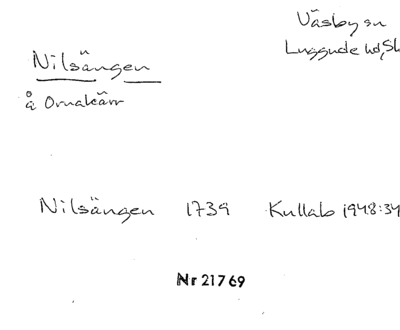 Väsby sn
Luggude hd, Sk
Nilsängen
å Ornakärr
Nilsängen 1739 Kullab 1948:34
Nr 21769